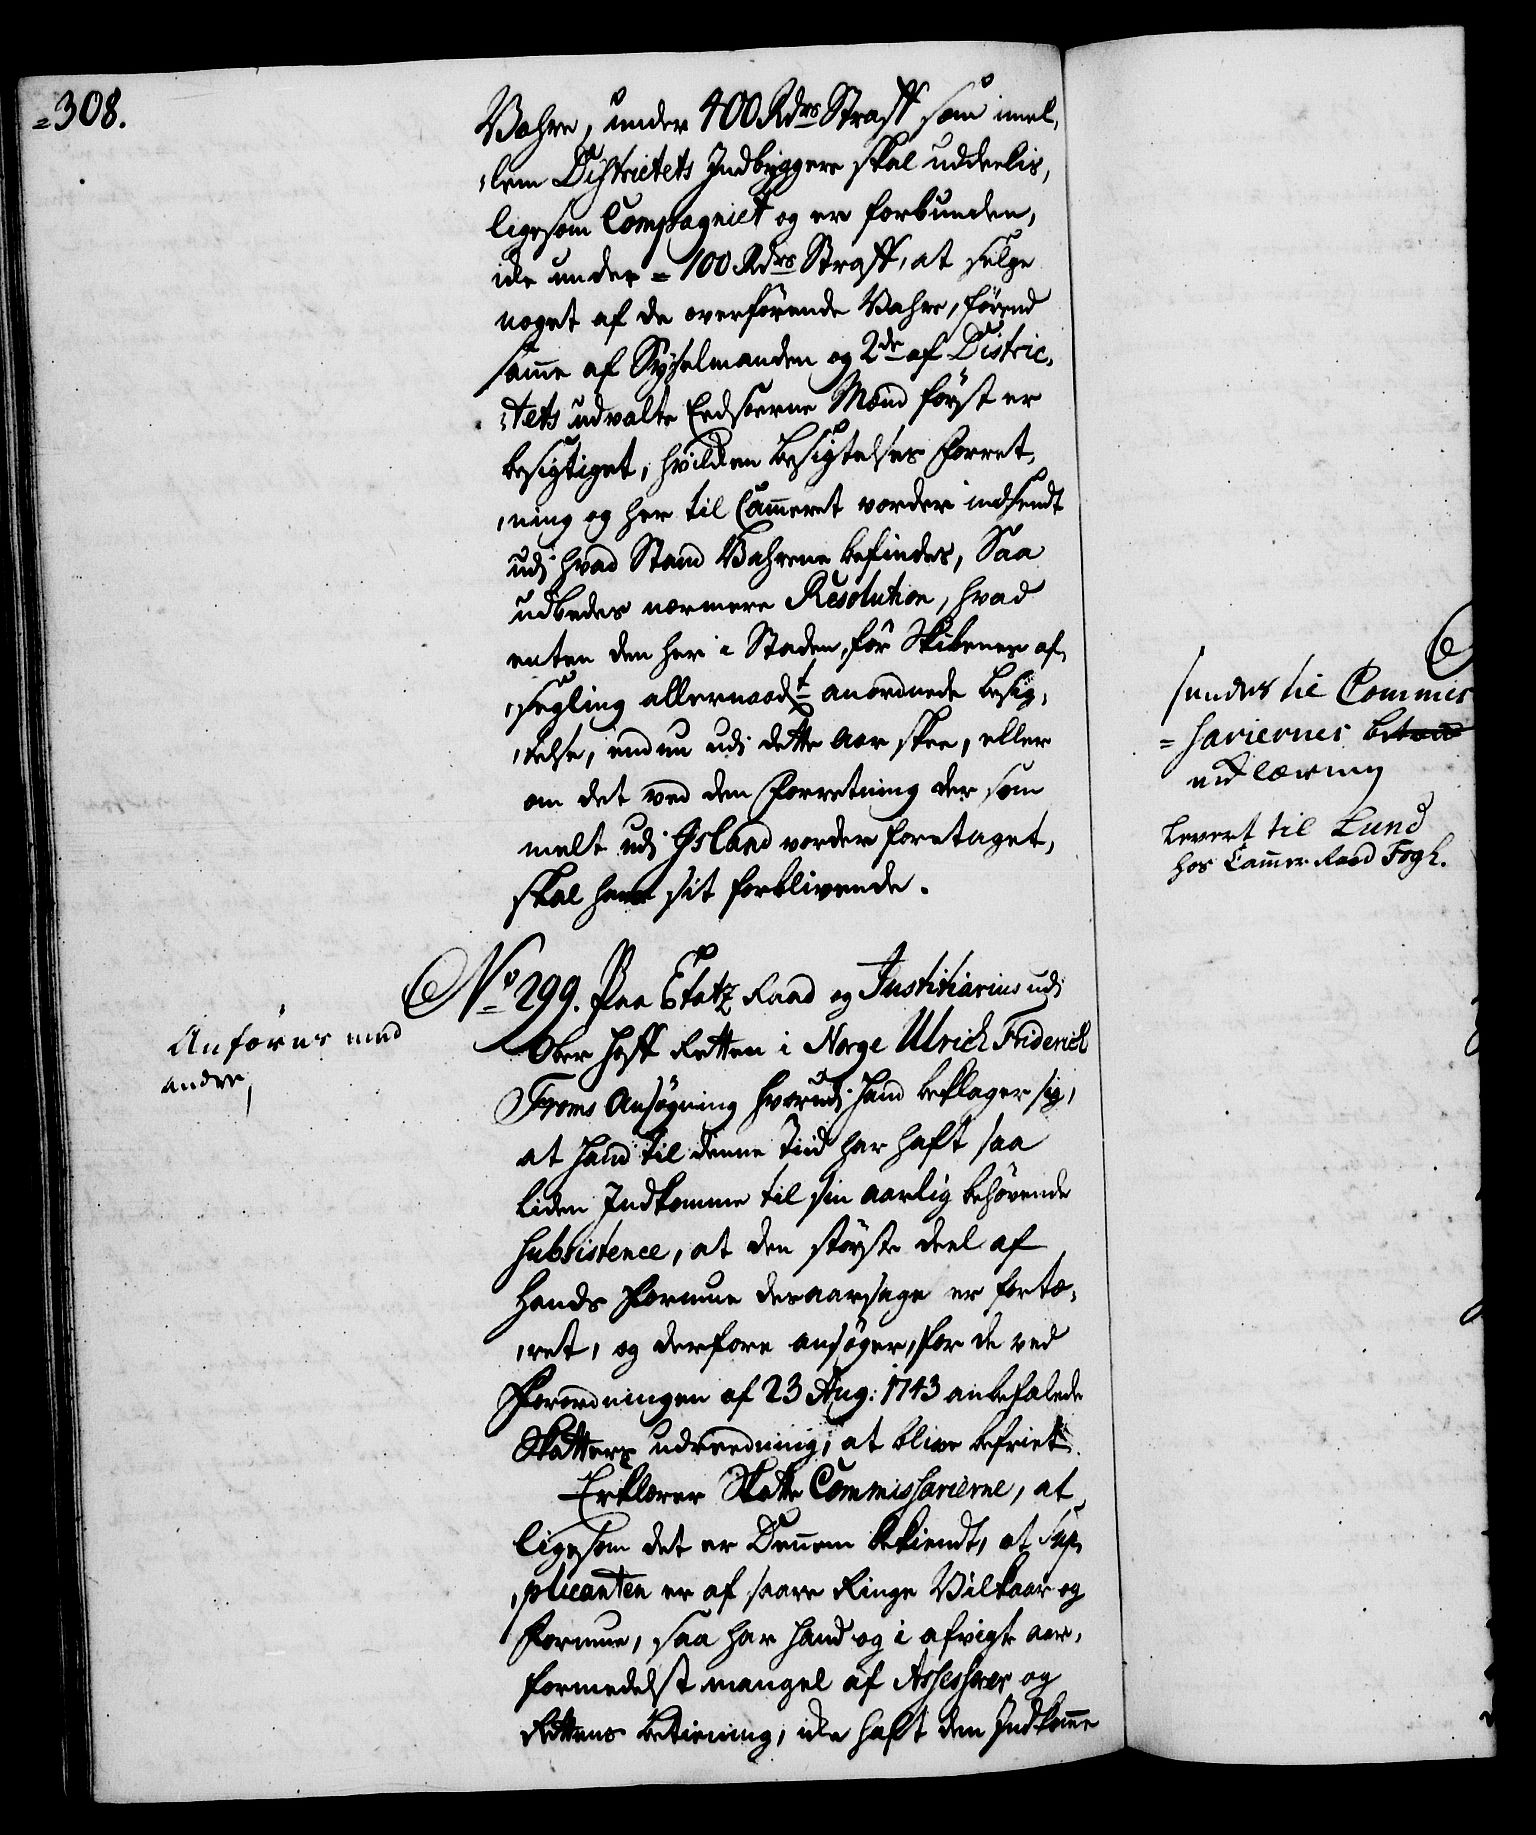 308.
Vahre, under 400 Rdrs Straff som imel,
,lem Districtets Indbyggere skal uddeelis,
ligesom Compagniet og er forbunden,
icke under = 100 Rdrs Straff, at selge
noget af de overförende Vahre, förend
samme af Sysselmanden og 2de af Distric,
,tets udvalte Eedsorne Mænd först er
besigtiget, hvilcken Besigtelses Forret,
,ning og her til Cammeret vorder indsendt
udj hvad Stand Vahrene befindes, Saa
udbedes nermere Resolution, hvad
enten den her i Staden, för Skibenes af,
,segling allernaadt anordnede Besig,
,telse, endnu udj dette Aar skee, eller
om det ved den Forretning der som
melt udj Island vorder foretaget,
skal have sit forblivende.
No 299. Paa Etatz Raad og Justitiarius udj
Ober Hoff Retten i Norge Ulrich Friderich
Froms Ansögning hvorudj hand beklager sig,
at hand til denne Tiid har haft saa
liden Indkomme til sin aarlig behövende
Subsistence, at den störste deel af
hands Formue desaarsage er fortæ,
,ret, og derfore ansöger, for de ved
Forordningen af 23 Aug: 1743 anbefalede
Skatters udreedning, at blive befriet.
Erklærer Skatte Commissarierne, at
ligesom det er Dennem bekiendt, at Sup,
,plicanten er af saare Ringe Vilkaar og
Formue, saa har hand og i afvigte aar,
formedelst mangel af Assessorer og
Rettens betiening, icke haft den Indkomme
Anföres med
andre,
sendes til Commis
=sariernes
erklæring
Levert til Lund
hos Cammer Raad Fogh.